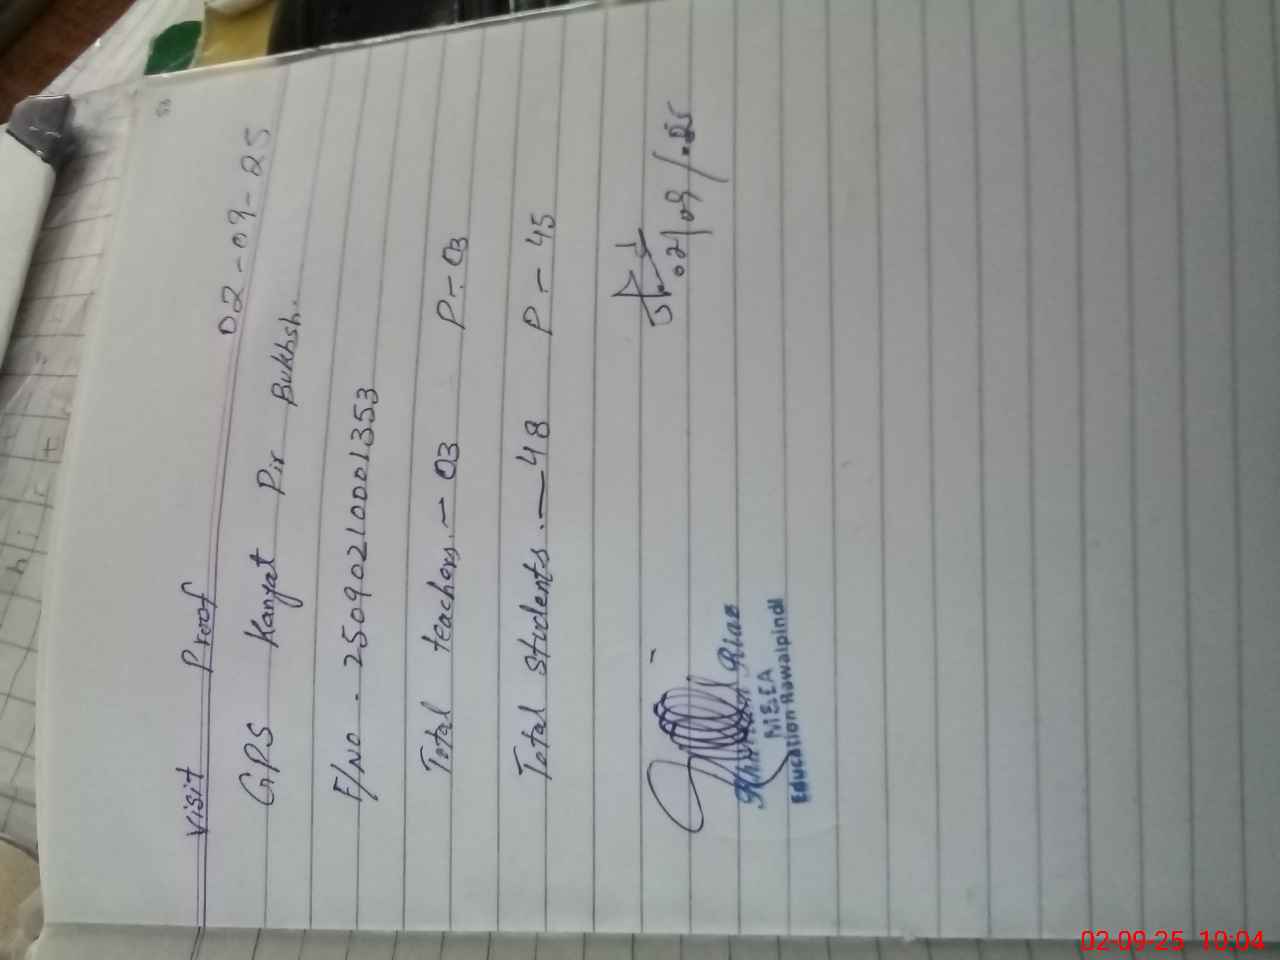 Visit Proof
02-09-25
GPS Kanyat Pir Bukhsh.
F/No - 25090210001353
Total teachers. - 03 P - 03
Total students. - 48 P - 45
02/09/.25
Riaz
MEEA
Education Rawalpindi
02-09-25 10:04